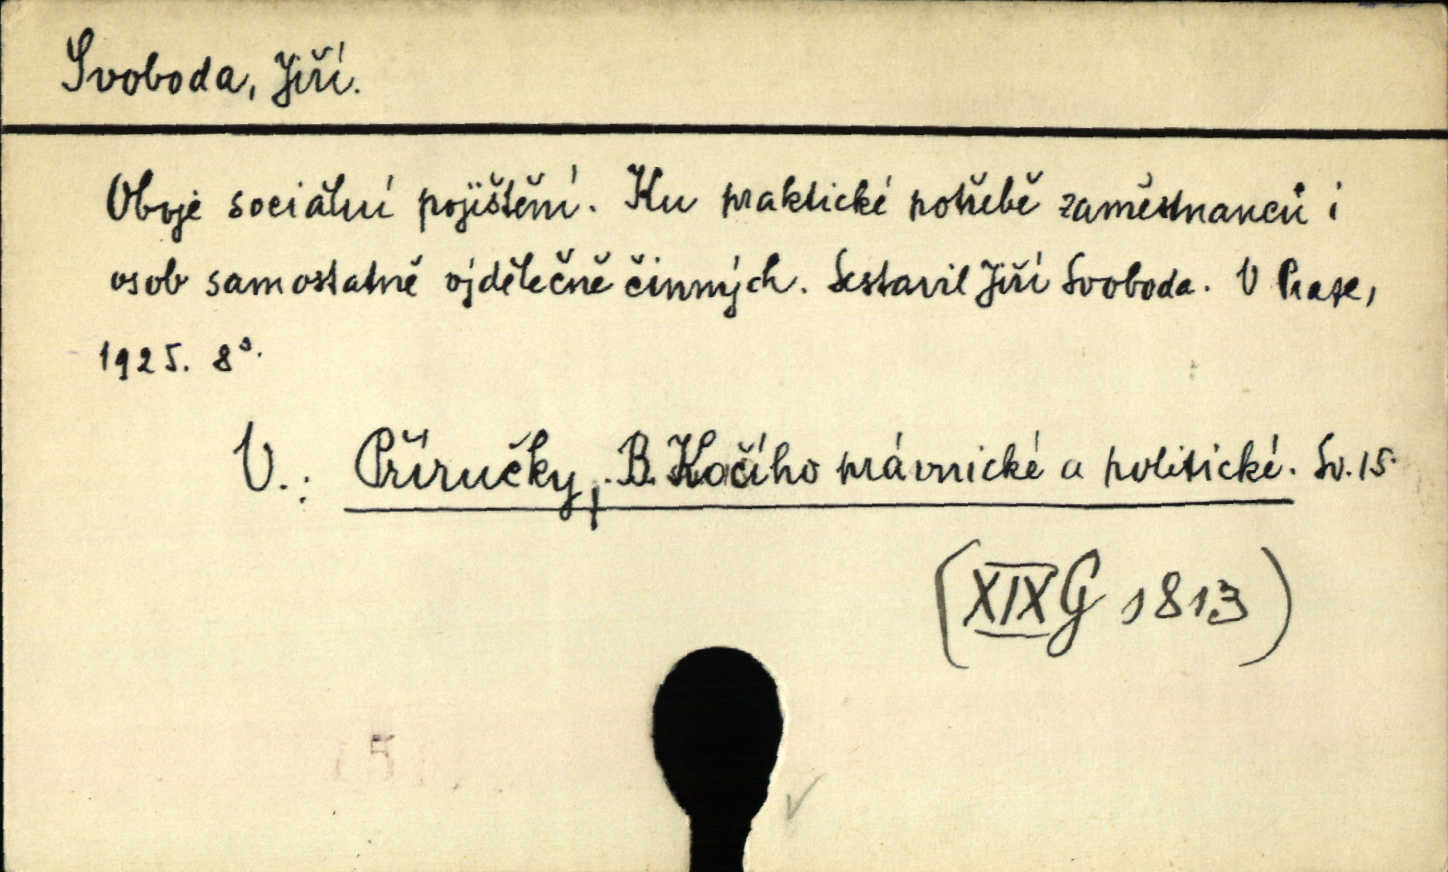 Svoboda, Jiří.
Oboje sociální pojištění. Ku praktické potřebě zaměstnanců i
osob samostatně výdělečně činných. Sestavil Jiří Svoboda. V Praze,
1925. 8°.
V.: Příručky, B. Kočího právnické a politické. Sv. 15.
(XIX G 1813)